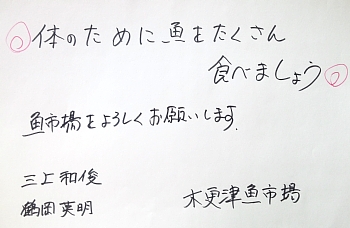 体のために魚をたくさん
食べましょう
魚市場をよろしくお願いします.
三上和俊
鶴岡英明
木更津魚市場